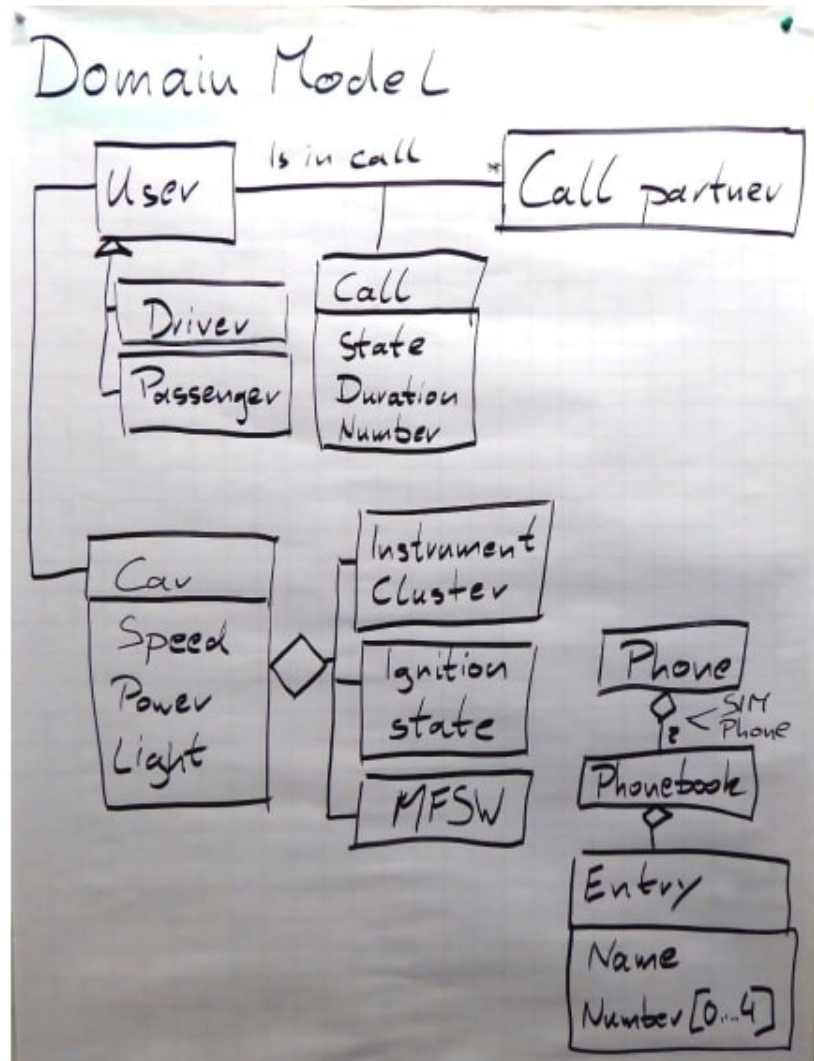 Domain Model
User
Is in call
*
Call partner
Driver
Passenger
Call
State
Duration
Number
Car
Speed
Power
Light
Instrument
Cluster
Ignition
state
MFSW
Phone
SIM
Phone
2
Phonebook
Entry
Name
Number [0...4]